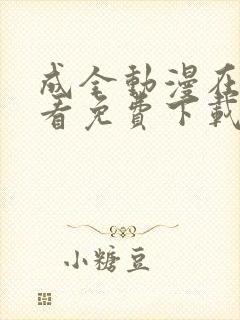 成全動漫在
看免費下載
小糖豆